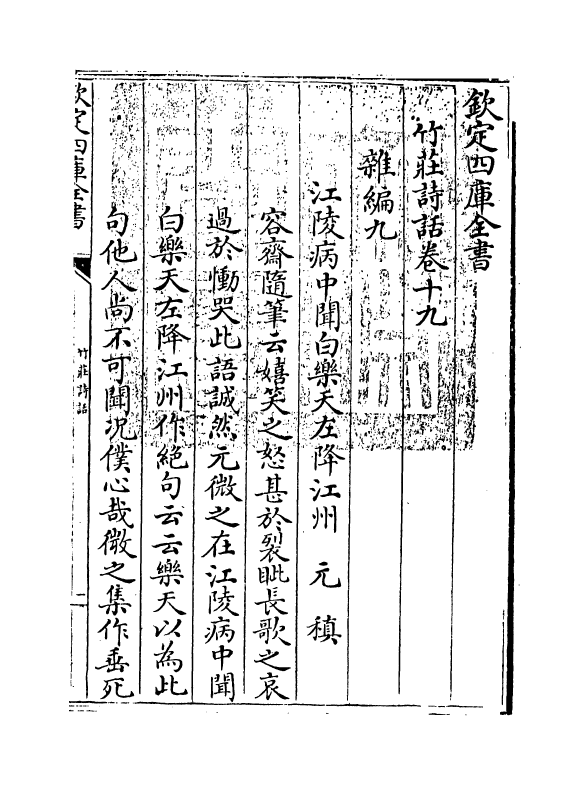 欽定四庫全書
竹莊詩話卷十九
雜編九
江陵病中聞白樂天左降江州　元稹
容齋隨筆云嬉笑之怒甚於裂眦長歌之哀
過於慟哭此語誠然元微之在江陵病中聞
白樂天左降江州作絶句云云樂天以為此
句他人尚不可聞况僕心哉微之集作垂死
欽定四庫全書
竹莊詩話